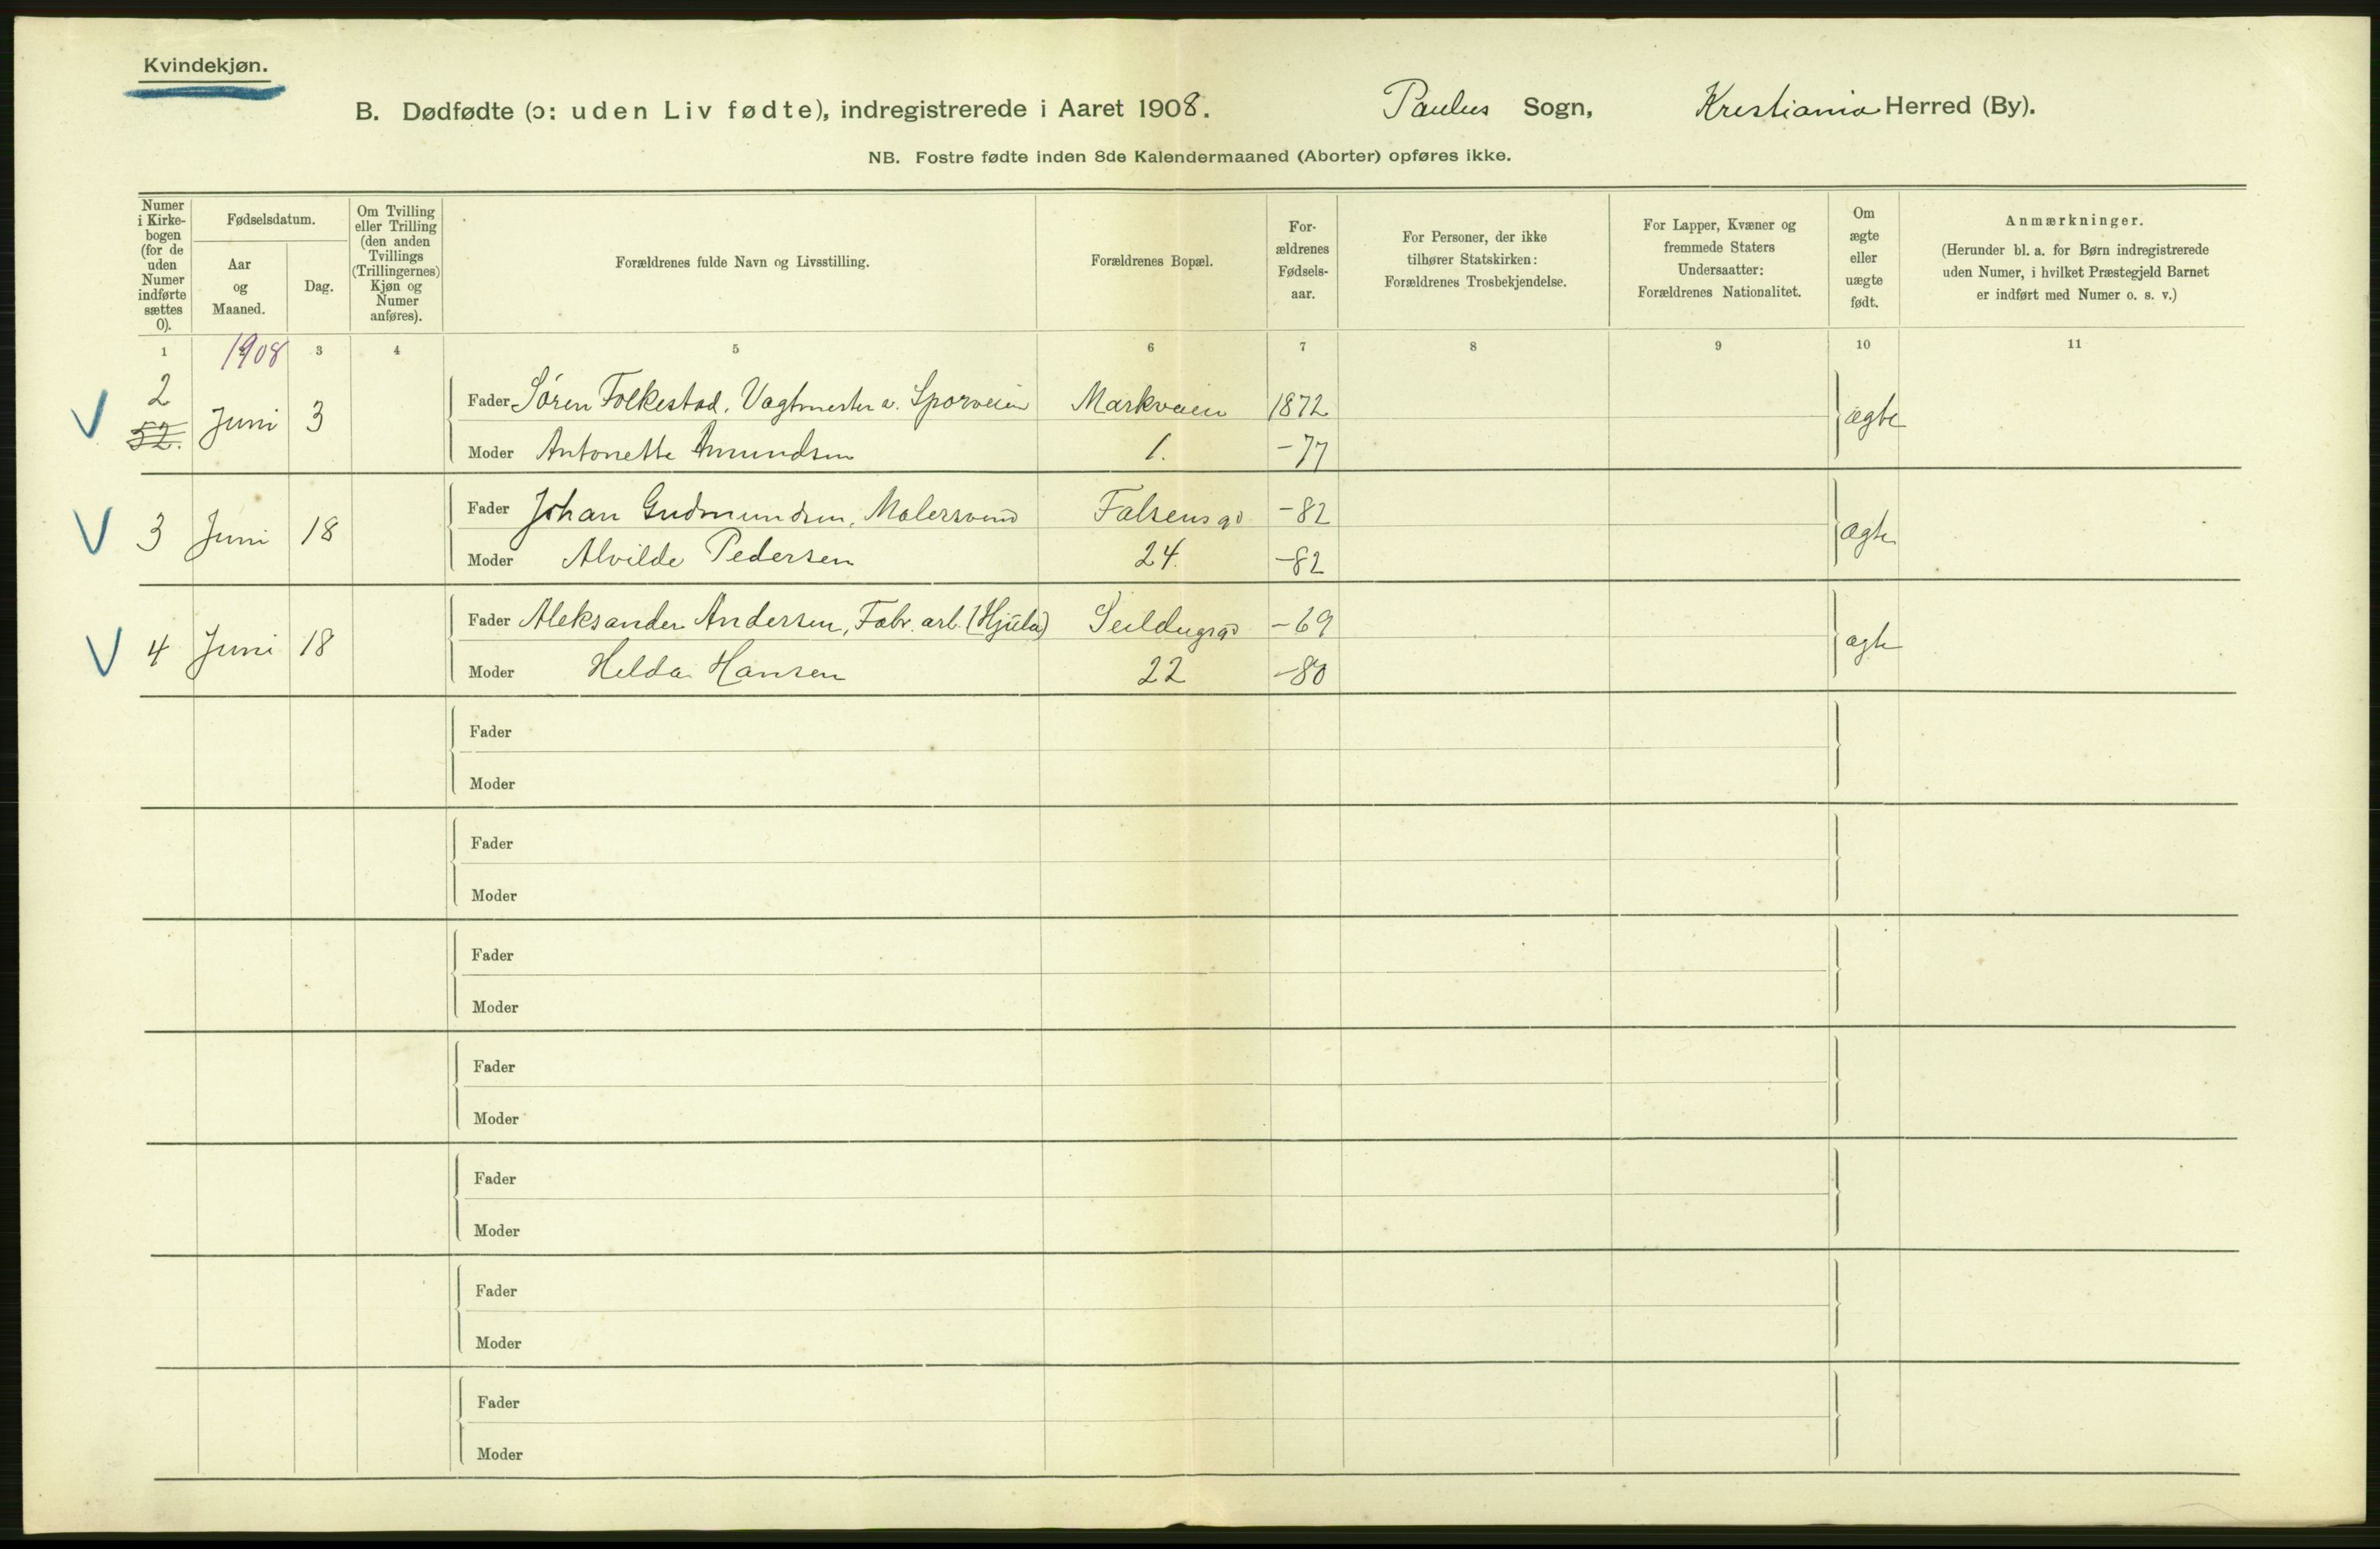 Kvindekjøn.
B. Dødfødte (ɔ: uden Liv fødte), indregistrerede i Aaret 1908. Paulus Sogn, Kristiania Herred (By).
NB. Fostre fødte inden 8de Kalendermaaned (Aborter) opføres ikke.
Numer i Kirke-bogen (for de uden Numer indførte sættes 0).
Fødselsdatum.
Aar og Maaned.
Dag.
Om Tvilling eller Trilling (den anden Tvillings (Trillingernes) Kjøn og Numer anføres).
Forældrenes fulde Navn og Livsstilling.
Forældrenes Bopæl.
For-ældrenes Fødsels-aar.
For Personer, der ikke tilhører Statskirken: Forældrenes Trosbekjendelse.
For Lapper, Kvæner og fremmede Staters Undersaatter: Forældrenes Nationalitet.
Om ægte eller uægte født.
Anmærkninger.
(Herunder bl. a. for Børn indregistrerede uden Numer, i hvilket Præstegjeld Barnet er indført med Numer o. s. v.)
1 1908 3 4 5 6 7 8 9 10 11
V 2 52. Juni 3 Fader Søren Folkestad, Vagtmester v. Sporveien Markveien 1872 ægte
Moder Antonette Amundsen 1. -77
V 3 Juni 18 Fader Johan Gudmundsen, Malersvend Falsens gd -82 ægte
Moder Alvilde Pedersen 24. -82
V 4 Juni 18 Fader Aleksander Andersen, Fabr. arb. (Hjula) Seildugsgd -69 ægte
Moder Helda Hansen 22 -80
Fader
Moder
Fader
Moder
Fader
Moder
Fader
Moder
Fader
Moder
Fader
Moder
Fader
Moder